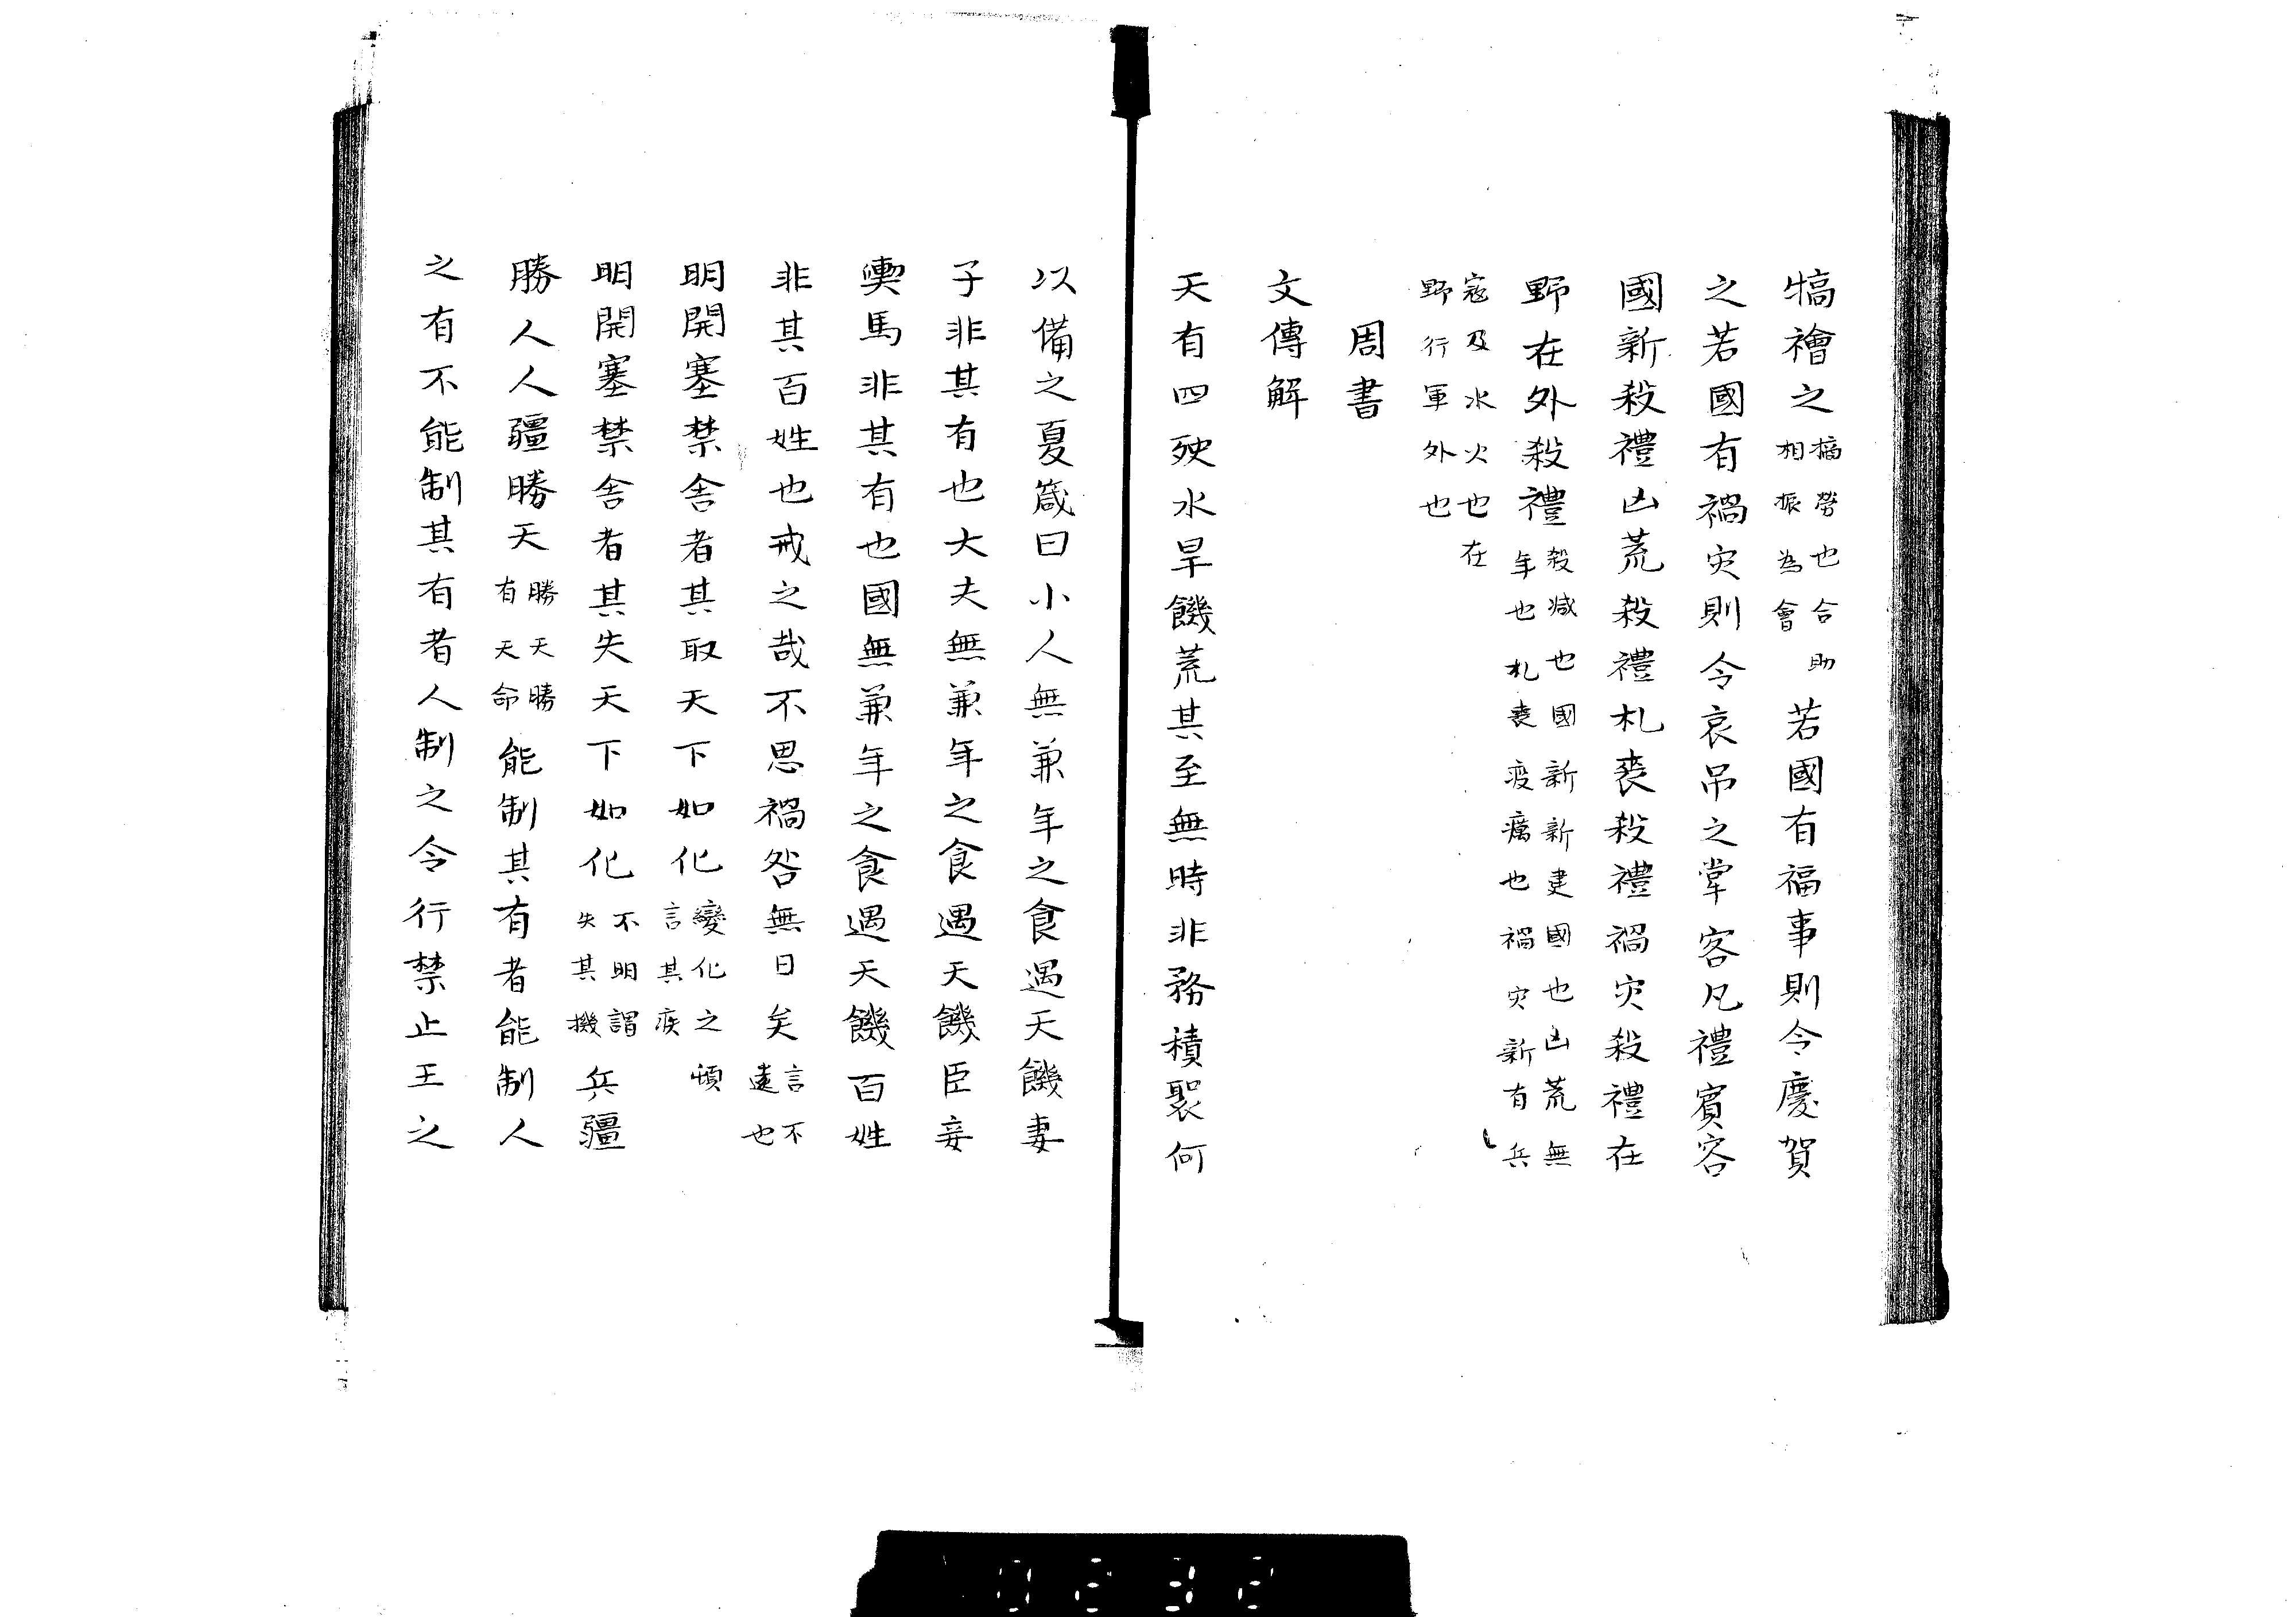 犒禬之犒勞也合助相振為會若國有福事則令慶賀
之若國有禍灾則令哀吊之掌客凡禮賓客
國新殺禮凶荒殺禮札喪殺禮禍灾殺禮在
野在外殺禮殺减也國新新建國也凶荒無年也札喪疫癘也禍灾新有兵
寇及水火也在野行軍外也
周書
文傳解
天有四殃水旱饑荒其至無時非務積聚何
以備之夏箴曰小人無兼年之食遇天饑妻
子非其有也大夫無兼年之食遇天饑臣妾
輿馬非其有也國無兼年之食遇天饑百姓
非其百姓也戒之哉不思禍咎無日矣言不遠也
明開塞禁舍者其取天下如化變化之頃言其疾
明開塞禁舍者其失天下如化不明謂失其機兵彊
勝人人彊勝天勝天勝有天命能制其有者能制人
之有不能制其有者人制之令行禁止王之
0232